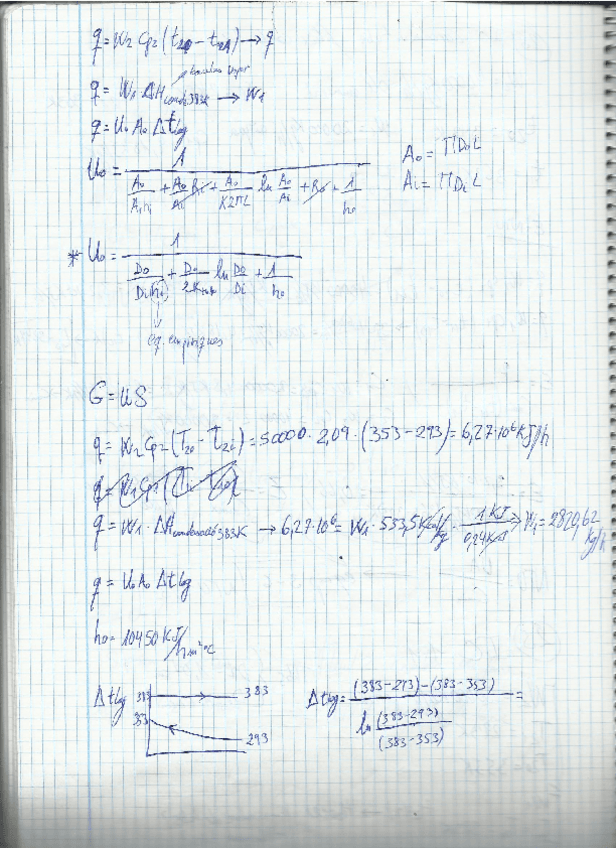 q = W₂ Cp₂ (t₂₀ - t₂₁) → q
q = W₁ ΔH cond 383K → W₁
q = U₀ A₀ Δtlog
U₀ = 1 / (A₀/(Ai hi) + A₀/Ai Ri + A₀/(K2πL) ln A₀/Ai + R₀ + 1/h₀)
A₀ = ΠD₀L
Ai = ΠDiL
* U₀ = 1 / (D₀/(Di(hi)) + D₀/(2K) ln D₀/Di + 1/h₀)
eq. empiriques
G = uS
q = W₂ Cp₂ (T₂₀ - T₂i) = 50000 · 2,09 · (353-293) = 6,27·10⁶ KJ/h
q = W₁ · ΔH condensació 383K → 6,27·10⁶ = W₁ · 533,5 Kcal/kg · 1KJ/0,24Kcal → W₁ = 2820,62 Kg/h
q = U₀ A₀ Δtlog
h₀ = 10450 KJ/hm²°C
Δtlog 383 → 383
353 293
Δtlog = ((383-293)-(383-353)) / (ln (383-293)/(383-353)) =